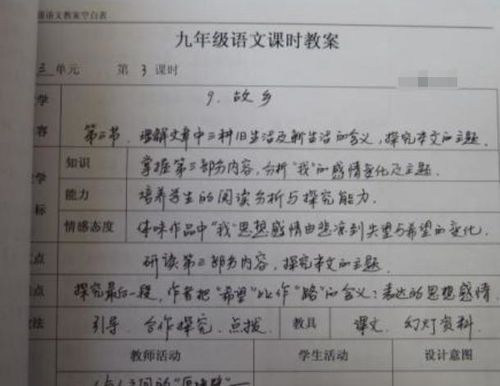 语文教案空白表
九年级语文课时教案
三 单元 第 3 课时
学
9. 故乡
容
第三节，理解文章中三种旧生活及新生活的含义，探究本文的主题.
知识
掌握第三部分内容，分析“我”的感情变化及主题.
学
能力
培养学生的阅读分析与探究能力.
标
情感态度
体味作品中“我”思想感情由悲凉到失望与希望的变化.
点
研读第三部分内容，探究本文的主题.
点
探究最后一段，作者把“希望”比作“路”的含义；表达的思想感情
法
引导、合作探究、点拨
教具
课文、幻灯资料.
教师活动
学生活动
设计意图